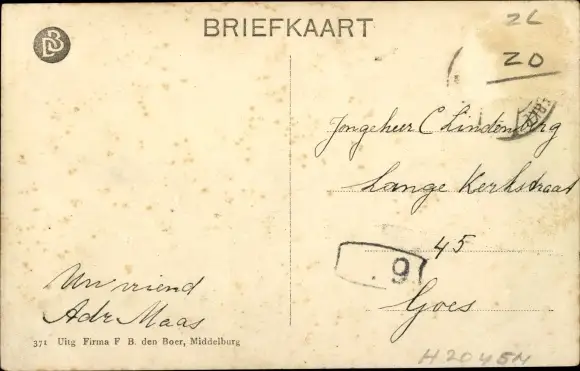 DB
BRIEFKAART
ZL
20
Jongeheer C Lindenberg
Lange Kerkstraat
45
Goes
.9
Uw vriend
Adr Maas
371 Uitg Firma F B. den Boer, Middelburg
H2045N